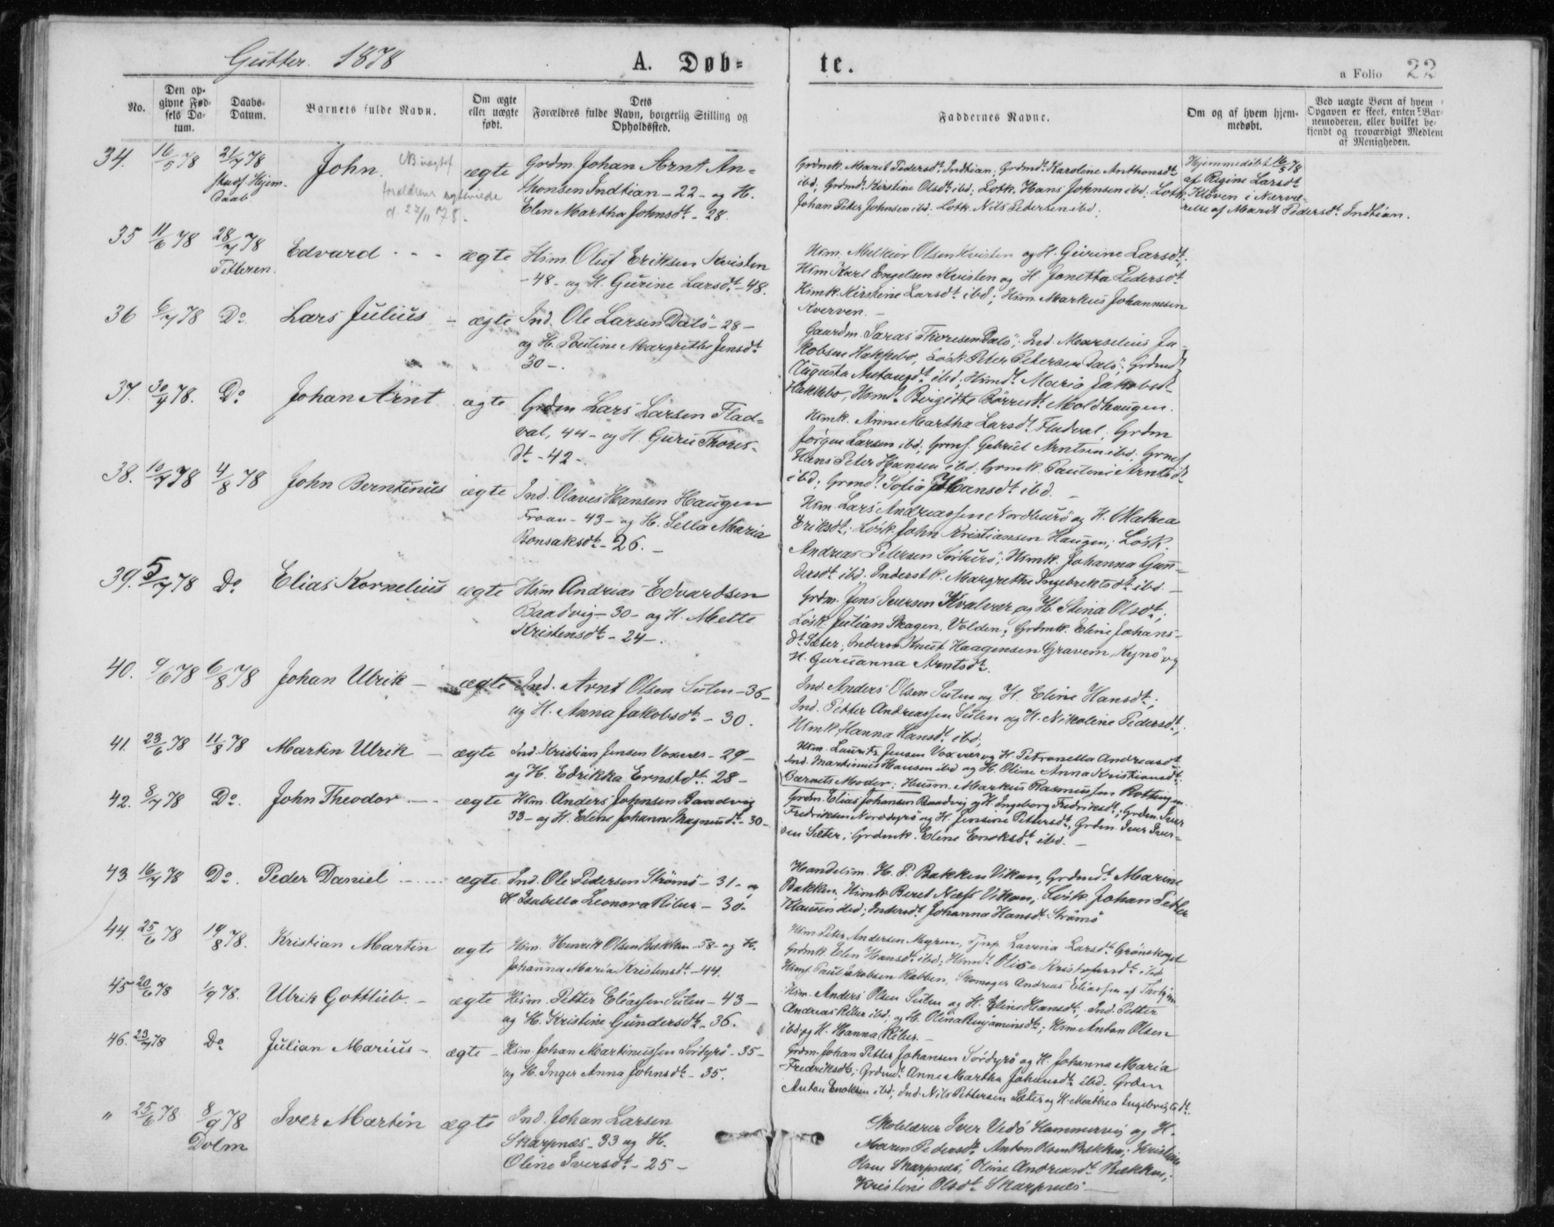 Gutter. 1878
A. Døb=
te.
a Folio 22
No.
Den op-
givne Fød-
sels Da-
tum.
Daabs-
Datum.
Barnets fulde Navn.
Om ægte
eller uægte
født.
Dets
Forældres fulde Navn, borgerlig Stilling og
Opholdssted.
Faddernes Navne.
Om og af hvem hjem-
medøbt.
Ved uægte Børn af hvem
Opgaven er skeet, enten Bar-
nemoderen, eller hvilket be-
kjendt og troværdigt Medlem
af Menigheden.
34. 16/5 78 21/7 78 John. ægte Grdm Johan Arnt An=
Hjem.
Daab
thonsen Indtian - 22 - og H.
Elen Martha Johnsdt - 28
Grdmk. Marit Pedersdt Indtian, Grdmdt. Karoline Anthonsdt
ibd, Grdmdt Kirstine Olsdt ibd; Løsk. Hans Johnsen ibd. Løsk.
Johan Peter Johnsen ibd. Løsk Nils Pedersen ibd.
Hjemmedøbt 16/5 78
af Regine Larsdt
Kløven i Nærvæ-
relse af Marit Pedersdt Indtian.
35 11/6 78 28/7 78 Edvard - - - ægte Hsm Oluf Eriksen Kvisten
Titteren
- 48 - og H. Gurine Larsdt - 48.
Hsm. Melkior Olsen Kvisten og H. Gurine Larsdt;
Hsm Karl Engelsen Kvisten og H. Janetta Pedersdt
Hsmk Kirstine Larsdt ibd; Hsm. Markus Johannesen
Kverven. -
36 6/7 78 Do Lars Julius - ægte Ind. Ole Larsen Dalø - 28 -
og H. Pouline Margrethe Jensdt
30 -.
Gaardm. Saras Thoresen Dalø; Ind Marselius Ja-
kobsen Hakkebo, Løsk Peter Petersen Dalø; Grdmdt
Augusta Antonsdt ibd; Hsmdt Maria Jakobsdt
Hakkebo, Hsmdt Birgitte Børresdt Moldhaugen.
37. 30/4 78. Do Johan Arnt ægte Grdm Lars Larsen Flad=
val, 44 - og H. Guru Thores-
dt - 42 -.
Hsmk. Anne Martha Larsdt Fladval; Grdm
Jørgen Larsen ibd, Grms. Gabriel Arntsen ibd, Grms
Hans Peter Hansen ibd, Grmk. Pauline Arntsdt
ibd; Grmd. Sofia Hansdt ibd. -
38. 10/4 78 4/8 78 John Berntinus ægte Ind. Olaves Hansen Haugen
Froan - 43 - og H. Sella Maria
Bonsaksdt - 26. -
Hsm Lars Andreassen Nordbuø og H. Mathea
Eriksdt; Løsk John Kristiansen Haugen; Løsk.
Andreas Petersen Sørbuø; Hsmk. Johanna Gun-
dersdt ibd. Inderstk. Margrethe Ingebrektsdt ibd. -
39. 5/7 78 Do Elias Kornelius ægte Hsm Andrias Edvardsen
Baadvig - 30 - og H. Mette
Kristensdt - 24 -.
Grdm. Jens Iversen Kvalvær og H. Stina Olsdt;
Løsk Julian Skagen, Volden; Grdmk. Eline Johans-
dt Sæter, Inderst Knut Haagensen Gravem, Rynø og
H. Guruanna Arntsdt.
40. 9/6 78 6/8 78 Johan Ulrik - ægte Ind. Arnt Olsen Sulen - 36 -
og H. Anna Jakobsdt - 30.
Ind. Anders Olsen Sulen og H. Eline Hansdt;
Ind. Petter Andreassen Sulen og H. Nikoline Pedersdt;
Hsmk Hanna Hansdt ibd;
41. 23/6 78 11/8 78 Martin Ulrik - ægte Ind. Kristian Jensen Voxvær - 29 -
og H. Edrikka Ernstdt 28 -
Hsm. Laurits Jensen Voxvær og H Petronella Andreasdt
Ind. Martinus Hansen ibd og H. Oline Anna Kristiansdt;
Barnets Moder; Husm. Markus Rasmussen
42. 8/7 78 Do. John Theodor - - ægte Hsm Anders Johnsen Baadvig
33 - og H. Eline Johanne Magnusdt - 30 -
Grdm Elias Johansen Baadvig og H Ingeborg Fredriksdt; Grdm Iver
Fredriksen Norddyrø og H Jensine Pettersdt, Grdm Iver Iver-
sen Sæter; Grdmk. Eline Enoksdt ibd. -
43 16/7 78 Do. Peder Daniel - - ægte Ind Ole Pedersen Strømø - 31 - og
H Isabella Leonora Riber - 30 -
Handelsm. H. P. Bakken Vikan, Grdmdt Marine
Bakken, Hsmk Beret Næss Vikan, Løsk Johan Petter
Klausen ibd; Indrdt Johanna Hansdt Strømø
44. 25/6 78 19/8 78. Kristian Martin ægte Hsm. Henrik Olsen Bekken - 58 - og H.
Johanna Maria Kristensdt - 44.
Hsm Peter Andersen Myren, Tjnp Lavina Larsdt Grønskaget
Grdmk Elen Hansdt ibd; Hsmdt Olise Kristofersdt ibd
45 20/6 78 1/9 78. Ulrik Gottlieb - ægte Hsm. Petter Eliassen Sulen - 43 -
og H. Kristine Gundersdt - 36.
Hsm. Anders Olsen Sulen og H. Eline Hansdt, Ind. Petter
Andreas Riber ibd. og H. Olina Benjaminsdt; Hsm Anton Olsen
ibd og H. Hanna Riber. -
46. 23/7 78 Do Julian Marius - ægte - Hsm Johan Martinussen Sørdyrø - 35 -
og H. Inger Anna Johnsdt - 35.
Grdm. Johan Petter Johansen Sørdyrø og H. Johanna Maria
Fredriksdt; Grdmdt Anne Martha Johansdt ibd. Grdm
Anton Enoksen ibd; Ind. Nils Pettersen Sæter og H. Mathea Ingebrigtsdt.
" 25/6 78 8/9 78 Iver Martin ægte Ind. Johan Larsen
Dolm
Skarpnæs - 33 og H.
Oline Iversdt - 25 -
Skolelærer Iver Vedø Hammervig og H.
Maren Pedersdt Anton Olsen Bekken; Kristine
Olsen Skarpnæs, Oline Andreasdt Bekken;
Kristine Olsdt Skarpnæs -